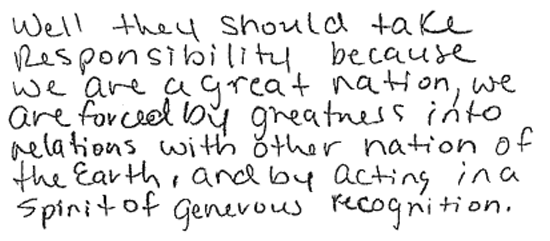 Well they should take
Responsibility because
we are a great nation, we
are forced by greatness into
relations with other nation of
the Earth, and by acting in a
spirit of generous recognition.